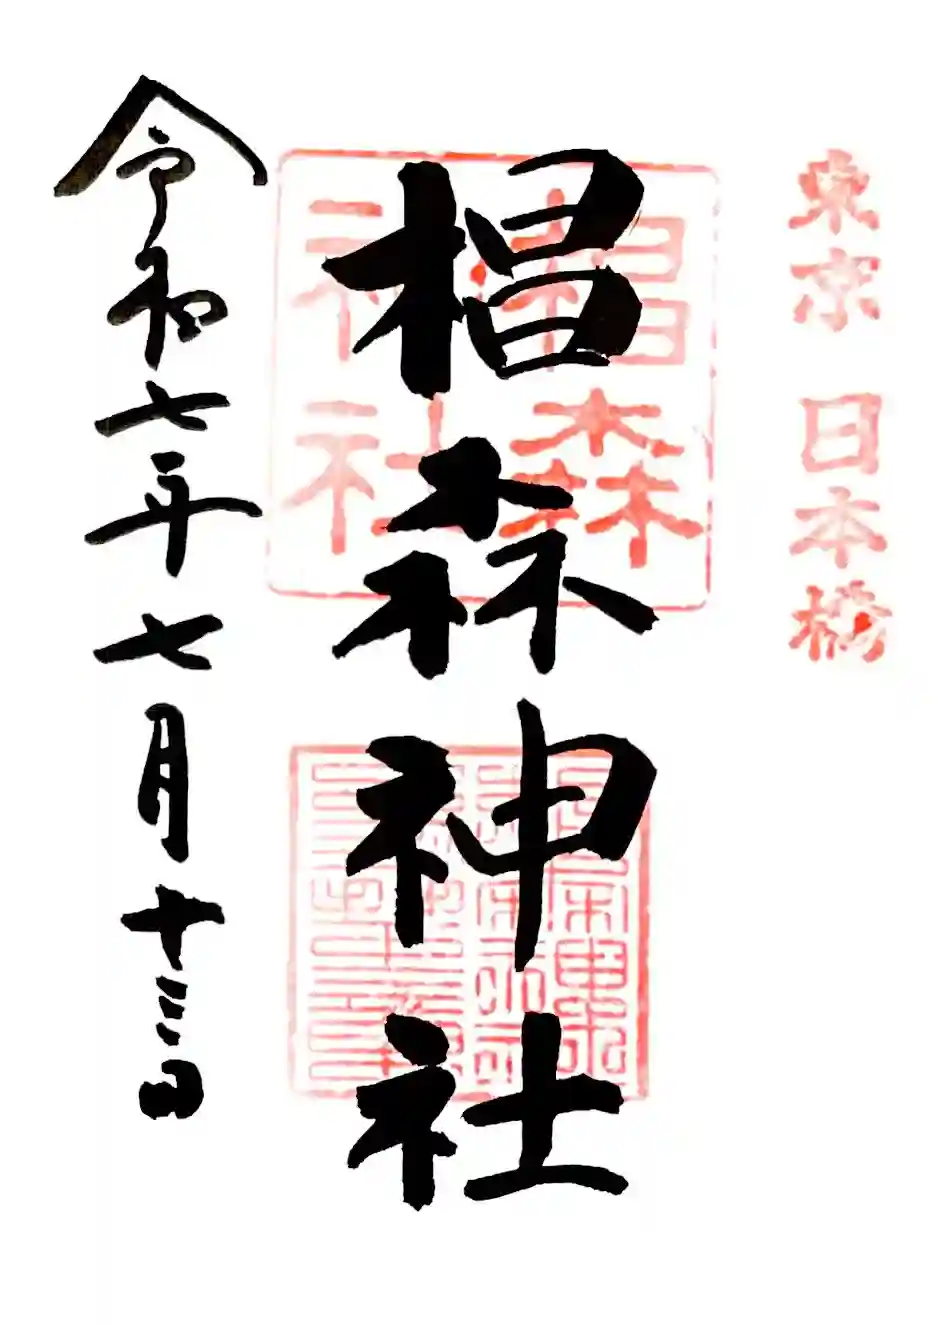 東京 日本橋
椙森神社
椙森神社
令和七年七月十三日